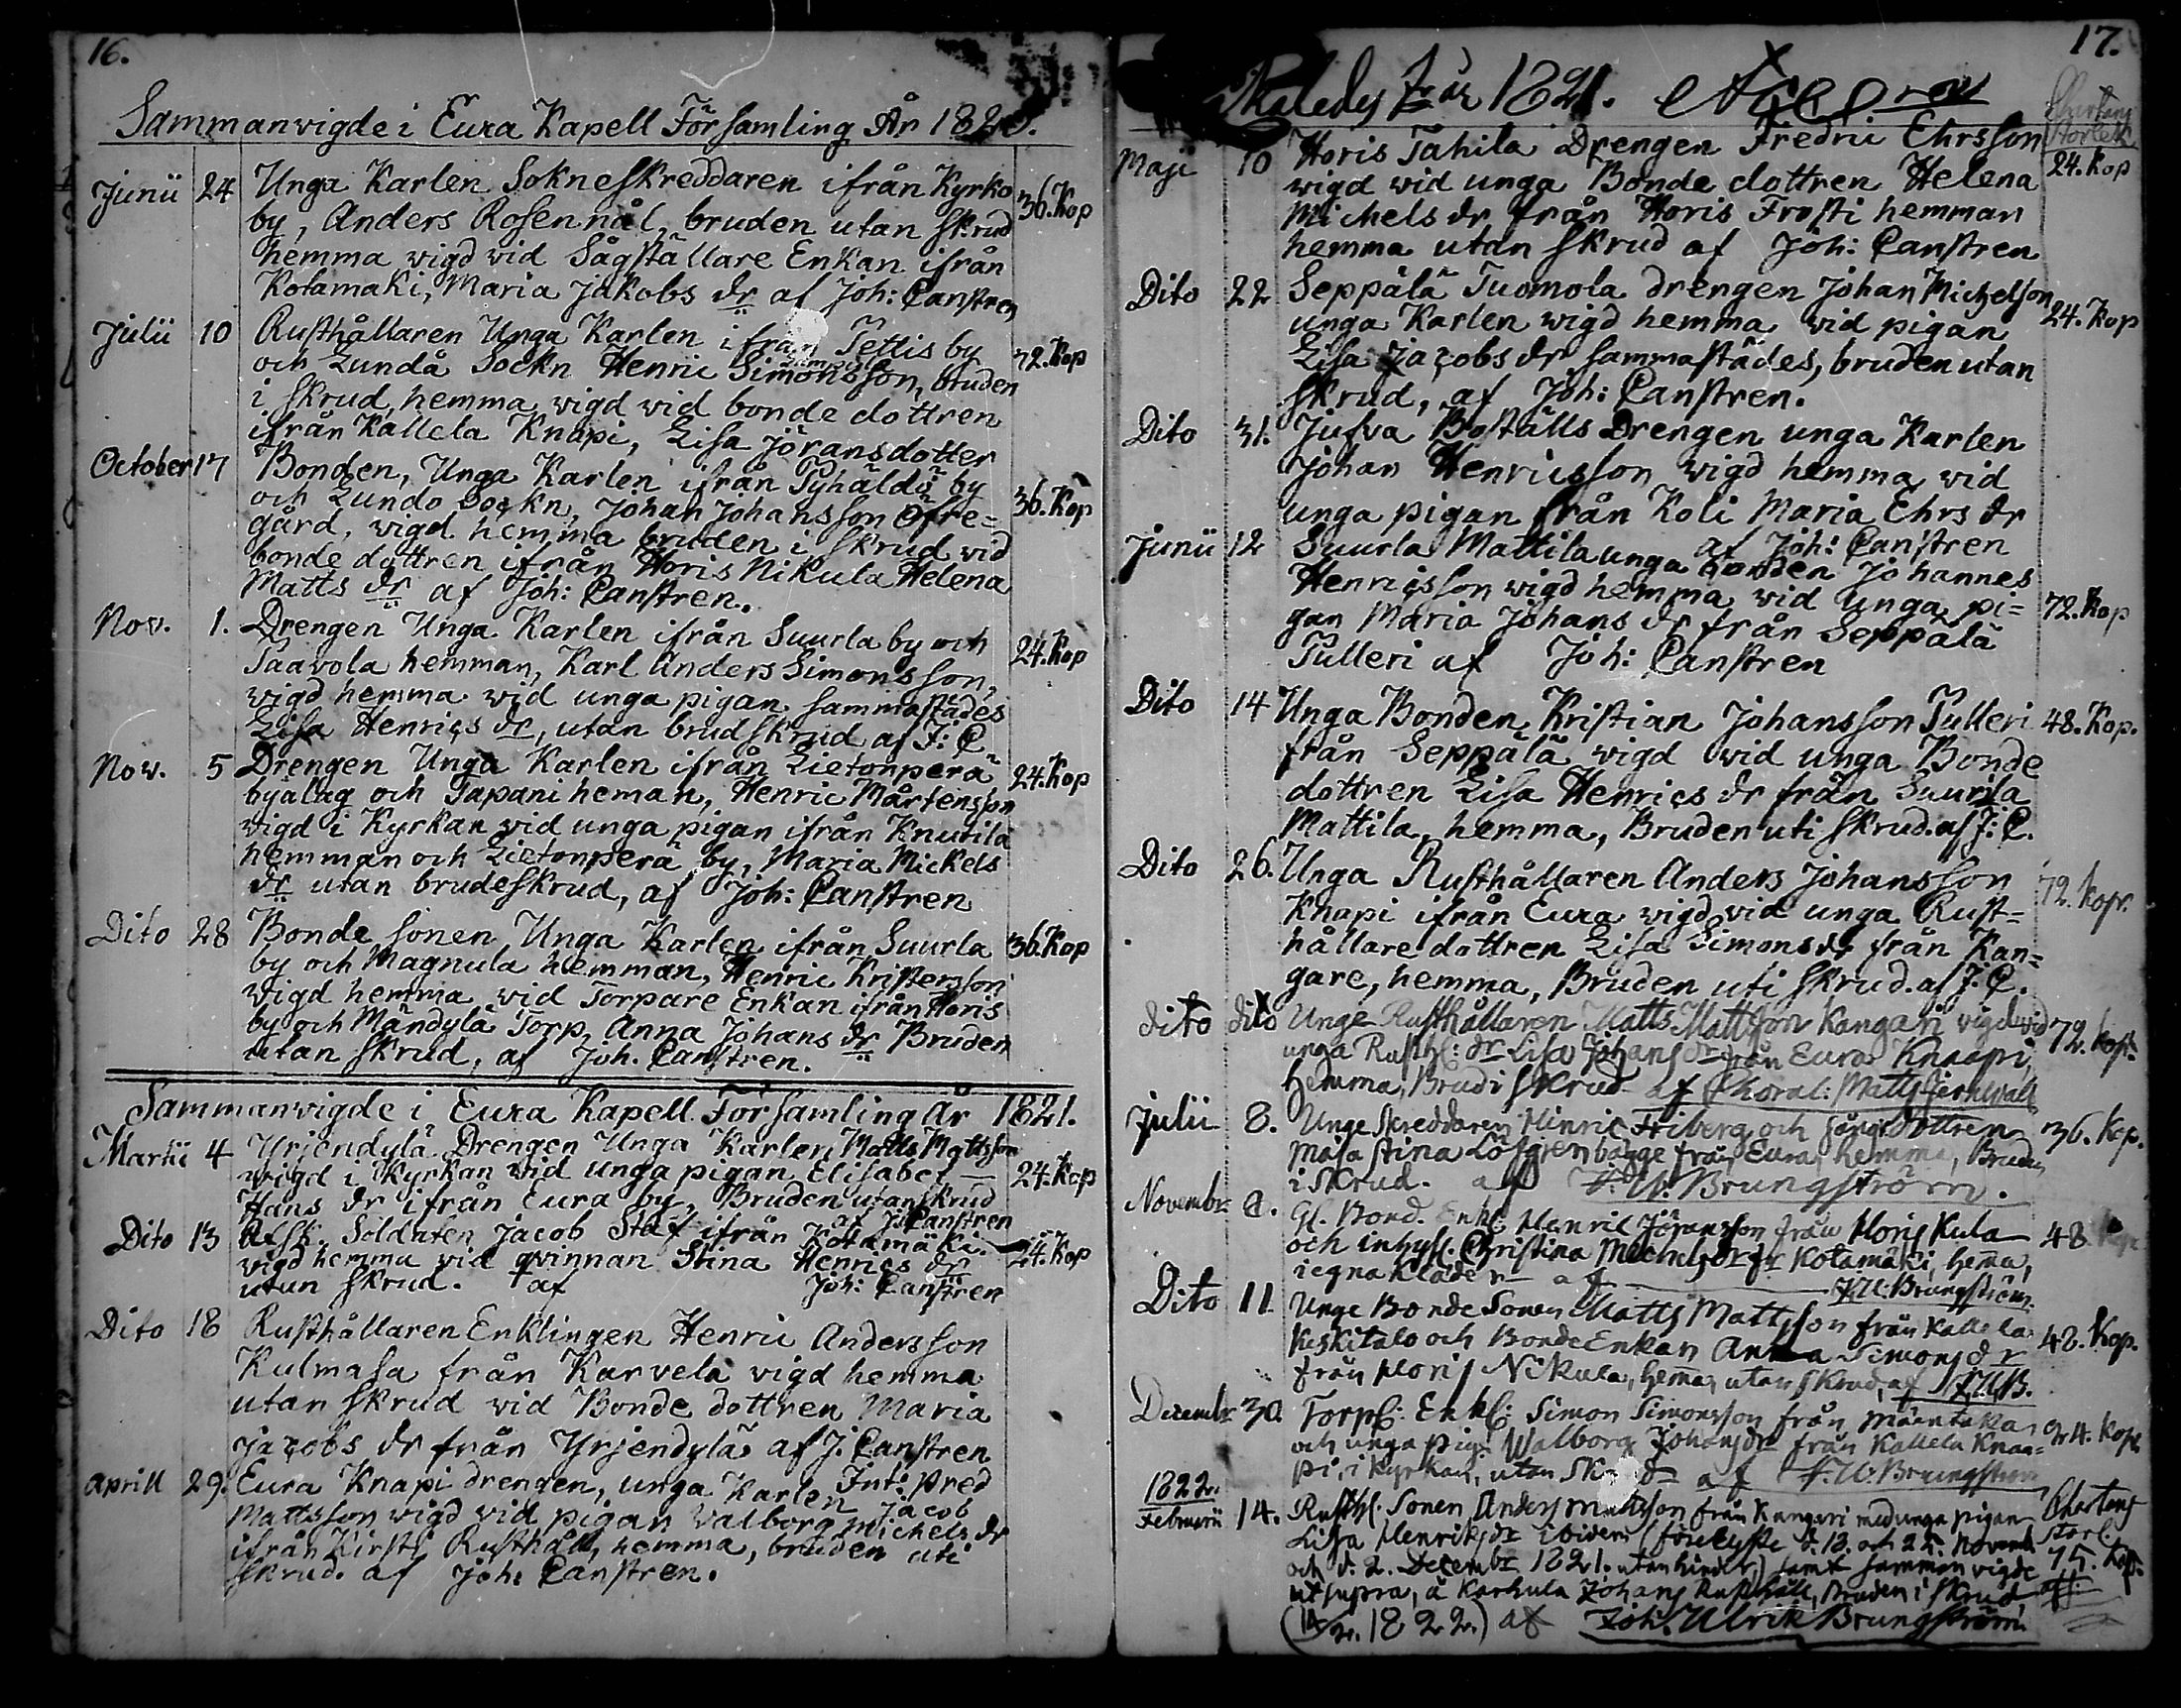 16.
Sammanwigde i Eura Kapell Församling År 1820.
Junii 24 Unga Karlen Sokneskreddaren ifrån Kyrko 36. Kop
by, Anders Rosennål, bruden utan skrud
hemma wigd wid Sågställare Enkan ifrån
Kotamaki, Maria Jakobs dr af Joh: Canstren
Julii 10 Rusthållaren Unga Karlen ifrån Tettis by 72. Kop
och Lundå Sockn Henric Simonsson, bruden
i skrud, hemma, wigd wid bonde dottren
ifrån Kallela Knapi, Lisa Jöransdotter
October 17 Bonden, Unga Karlen ifrån Pyhäldö by 36. Kop
och Lundo Sockn, Johan Johansson Öfre=
gård, wigd hemma bruden i skrud wid
bonde dottren ifrån Horis Nikula Helena
Matts dr af Joh: Canstren.
Nov. 1. Drengen Unga Karlen ifrån Suurla by och 24. Kop
Paavola hemman, Karl Anders Simonsson,
wigd hemma wid unga pigan sammastädes
Lisa Henrics dr, utan brudskrud af J: C
Nov. 5 Drengen Unga Karlen ifrån Lietonperä 24. Kop
byalag och Tapani heman, Henric Mårtensson
wigd i Kyrkan wid unga pigan ifrån Knutila
hemman och Lietonperä by, Maria Mickels
dr utan brudeskrud, af Joh: Canstren
Dito 28 Bonde sonen, Unga Karlen ifrån Suurla 36. Kop
by och Magnula hemman, Henric Kristersson
wigd hemma wid Torpare Enkan ifrån Horis
by och Mändylä Torp, Anna Johans dr Bruden
utan skrud, af Joh. Canstren.
Sammanwigde i Eura Kapell Församling År 1821.
Martii 4 Yrjendylä Drengen Unga Karlen Matts Mattsson 24. Kop
wigd i Kyrkan wid unga pigan Elisabet
Hans dr ifrån Eura by, Bruden utan skrud
af J: Canstren
Dito 13 Afsk. Soldaten Jacob Staf ifrån Kotamäki 24. Kop
wigd hemma wid qvinnan Stina Henrics dr
utan skrud. af Joh: Canstren
Dito 18 Rusthållaren Enklingen Henric Andersson
Kulmasa från Karvela wigd hemma
utan skrud wid Bonde dottren Maria
Jacobs dr från Yrjendylä af J. Canstren
Aprill 29. Eura Knapi drengen, unga Karlen Int: pred Jacob
Mattsson wigd wid pigan Walborg Michels dr
ifrån Kirsti Rusthåll, hemma, bruden uti
skrud. af Joh: Canstren.
17.
år 1821.
Maji 10 Horis Tahila Drengen Fredric Ehrsson 24. Kop
wigd wid unga Bonde dottren Helena
Michels dr från Horis Frosti hemman
hemma utan skrud af Joh: Canstren
Dito 22 Seppälä Tuomola drengen Johan Michelson 24. Kop
unga Karlen wigd hemma wid pigan
Lisa Jacobs dr sammastädes, bruden utan
skrud, af Joh: Canstren.
Dito 31. Jufva Boställs Drengen unga Karlen
Johan Henricsson wigd hemma wid
unga pigan från Koli Maria Ehrs dr
af Joh: Canstren
Junii 12 Suurla Mattila unga bonden Johannes
Henricsson wigd hemma wid unga pi= 72. Kop
gan Maria Johans dr från Seppälä
Tulleri af Joh: Canstren
Dito 14 Unga Bonden Kristian Johansson Tulleri 48. Kop.
från Seppälä wigd wid unga Bonde
dottren Lisa Henrics dr från Suurla
Mattila, hemma, Bruden uti skrud. af J: C.
Dito 26. Unga Rusthållaren Anders Johansson 72. Kopr.
Knapi ifrån Eura wigd wid unga Rust=
hållare dottren Lisa Simons dr från Kan=
gare, hemma, Bruden uti skrud. af J. C.
dito dito Unge Rusthållaren Matts Mattsson Kangari vigd wid 72. kop.
unga Rusth: dr Lisa Johans dr från Eura Knaapi,
hemma, Brud i skrud af Matts
Julii 8. Unge Skreddaren Hinric Friberg och dottren 36. Kop.
Maja Stina Löfgren bägge från Eura, hemma, Bruden
i Skrud. af J. U. Brungström.
Novembr. Henric Jöransson från Horis Kula 48
och inhys. Christina Michelsdr fr Kotamäki, hema,
i egna kläder af J. U. Brungström.
Dito 11 Unge Bonde Sonen Matts Mattsson från Kallela 48. Kop.
Keskitalo och Bonde Enkan Anna Simonsdr
från Horis Nikula, hema, utan skrud, af J. U. B.
Decembr. 30. Torp: Enkl: Simon Simonsson från 24. Kop.
och unga pig. Walborg Johansdr från Kallela Knaa=
pi, i kyrkan, utan skrud af J. U. Brungström
1822.
Februarii 14. Rusth. Sonen Anders Mattsson från Kangari med unga pigan
Lisa Henriksdr ibidem (förelyste d. 18. och 25. Novemb.
och d. 2. Decembr 1821. utan hinder) samt sammanvigde 75. kop.
ut supra, å Karhula Johans Rusthåll, Bruden i Skrud
(14/2. 1822.) af Joh. Ulrik Brungström.